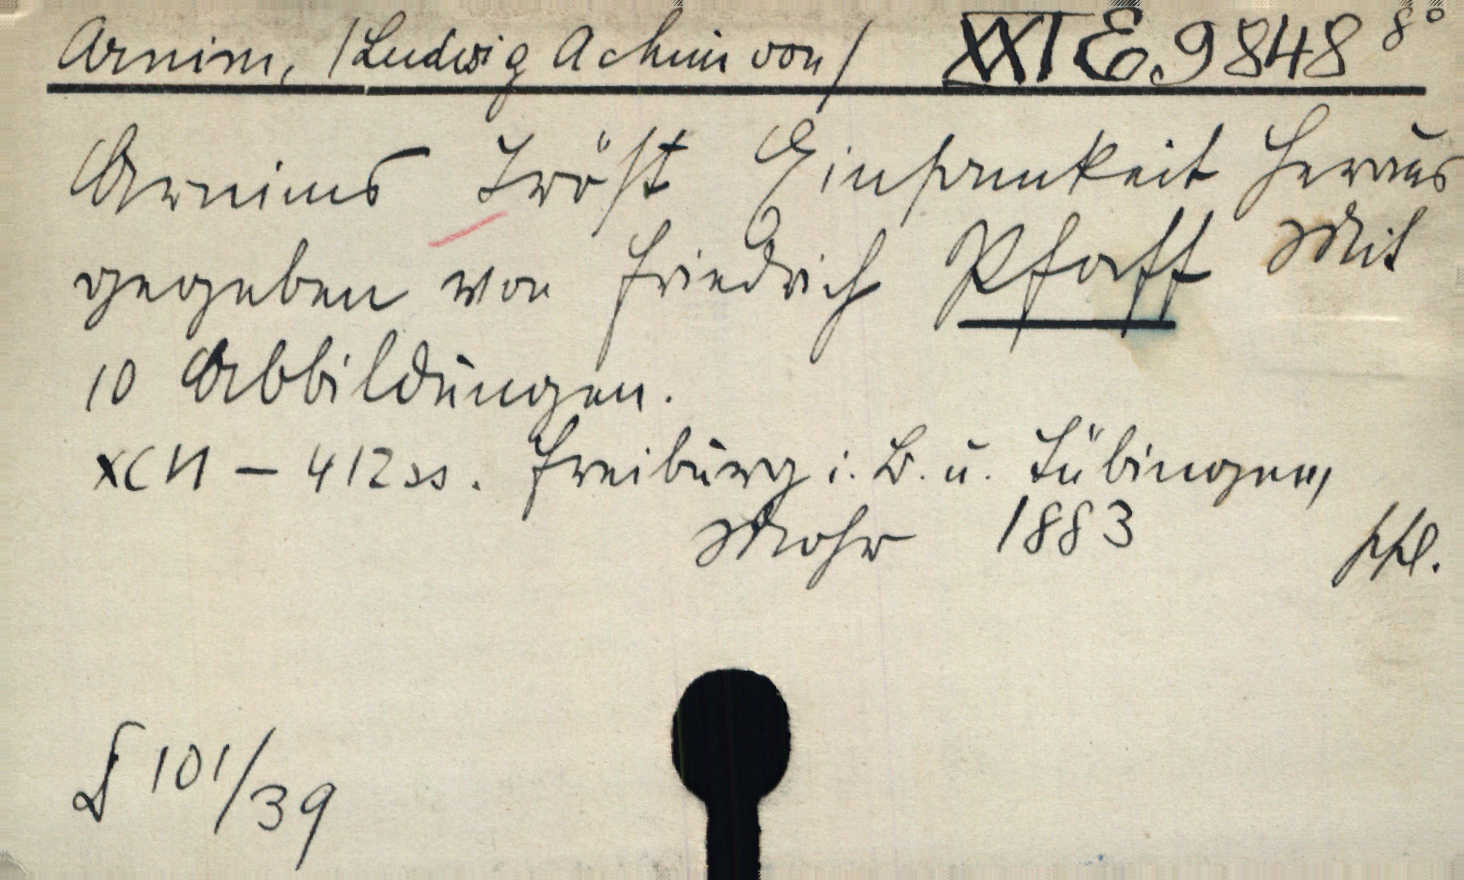 Arnim, /Ludwig Achim von/ XXI E 9848 8°
Arnims Tröst Einsamkeit Heraus
gegeben von Friedrich Pfaff Mit
10 Abbildungen.
XCII – 412 ss. Freiburg i. B. u. Tübingen,
Mohr 1883
101/39